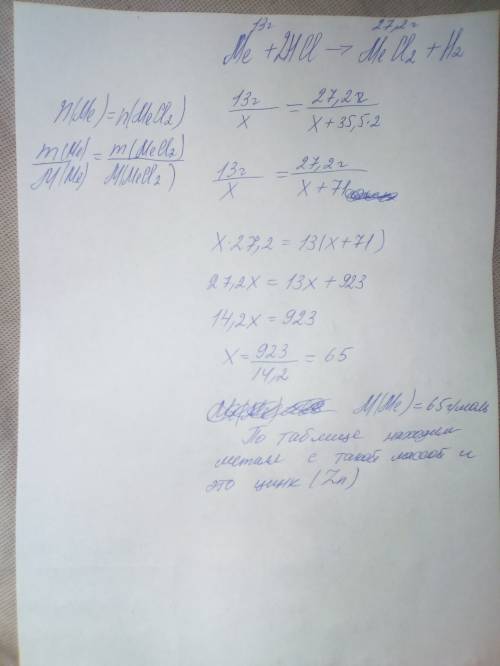 13г 27,2г
Me + 2HCl → MeCl₂ + H₂
n(Me) = n(MeCl₂)
m(Me)/M(Me) = m(MeCl₂)/M(MeCl₂)
13г/x = 27,2г/x + 35,5·2
13г/x = 27,2г/x + 71
x·27,2 = 13(x+71)
27,2x = 13x + 923
14,2x = 923
x = 923/14,2 = 65
M(Me) = 65 г/моль
По таблице находим
металл с такой массой и
это цинк (Zn)